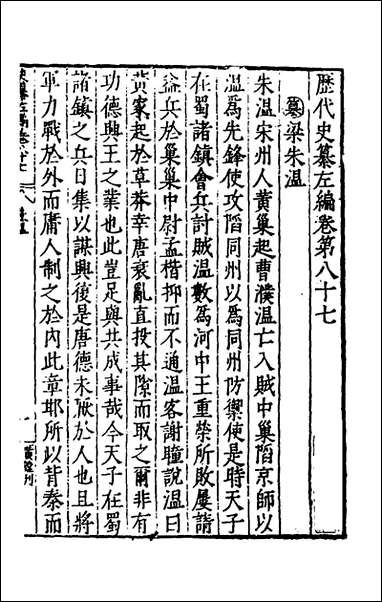 歷代史纂左編卷第八十七
篡梁朱溫
朱溫宋州人黃巢起曹濮溫亡入賊中巢陷京師以
溫為先鋒使攻陷同州以為同州防禦使是時天子
在蜀諸鎮會兵討賊溫數為河中王重榮所敗屢請
益兵於巢巢中尉孟楷抑而不通溫客謝瞳說溫曰
黃家起於草莽幸唐衰亂直投其隙而取之爾非有
功德興王之業也此豈足與共成事哉今天子在蜀
諸鎮之兵日集以謀興復是唐德未厭於人也且將
軍力戰於外而庸人制之於內此章邯所以背秦而